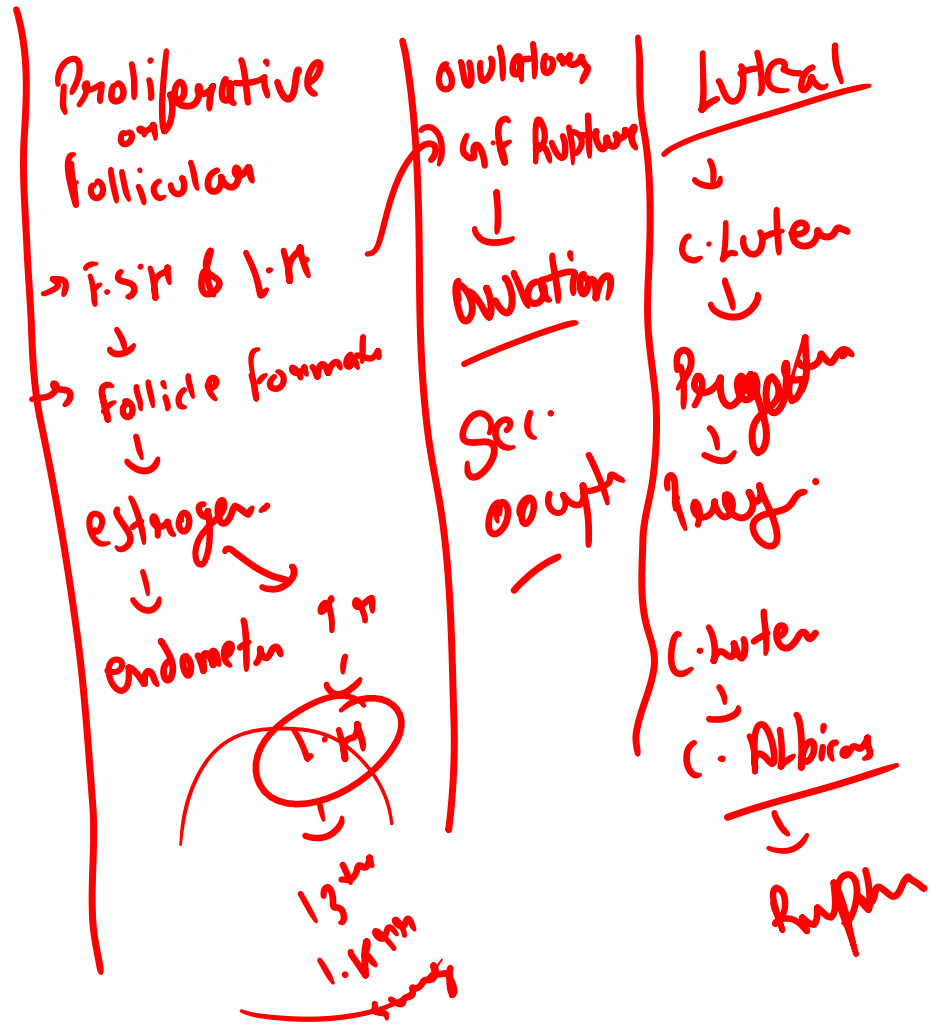 Proliferative
or
Follicular
F.S.H & L.H
Follicle Format
estrogen.
endometr
L.H
13th
ovulatory
G.F Rupture
ovulation
Sec.
oocyt
Luteal
C.Luteu
Progest
Preg.
C.Luteu
C. Albicans